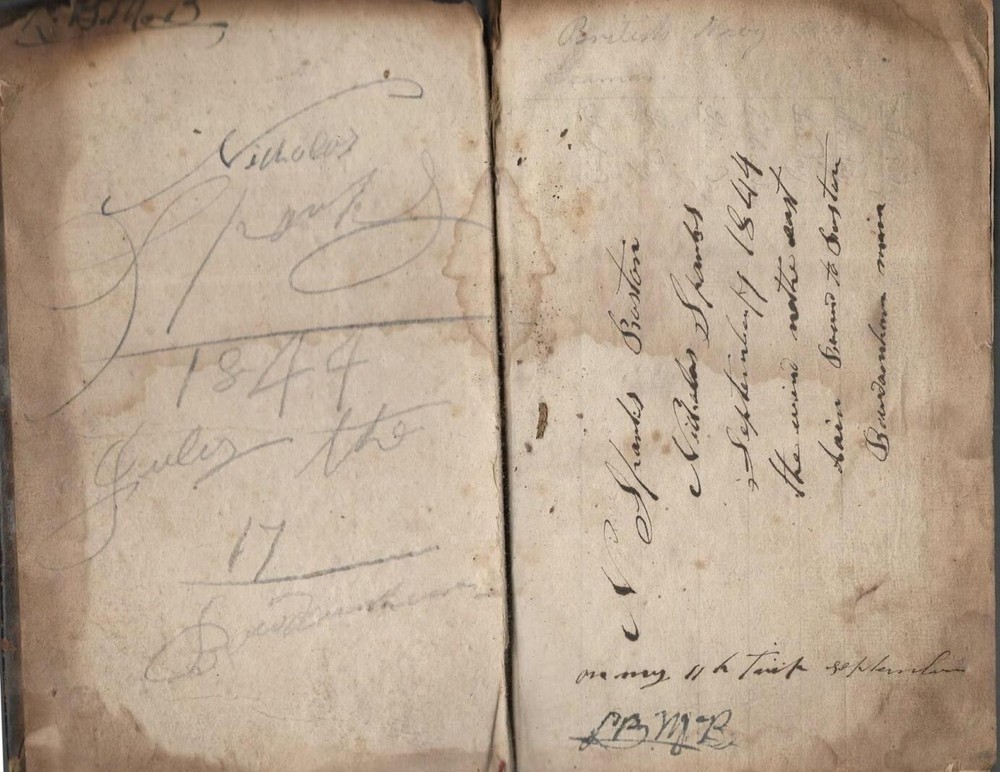 Nicholas
Spanks
1844
July the
17
Bowdoinham
British Navy
Seaman
N Spanks Boston
Nicholas Spanks
September 17 1844
the wind nothe east
rain Bound to Boston
Bowdoinham main
on my 11th Trip september